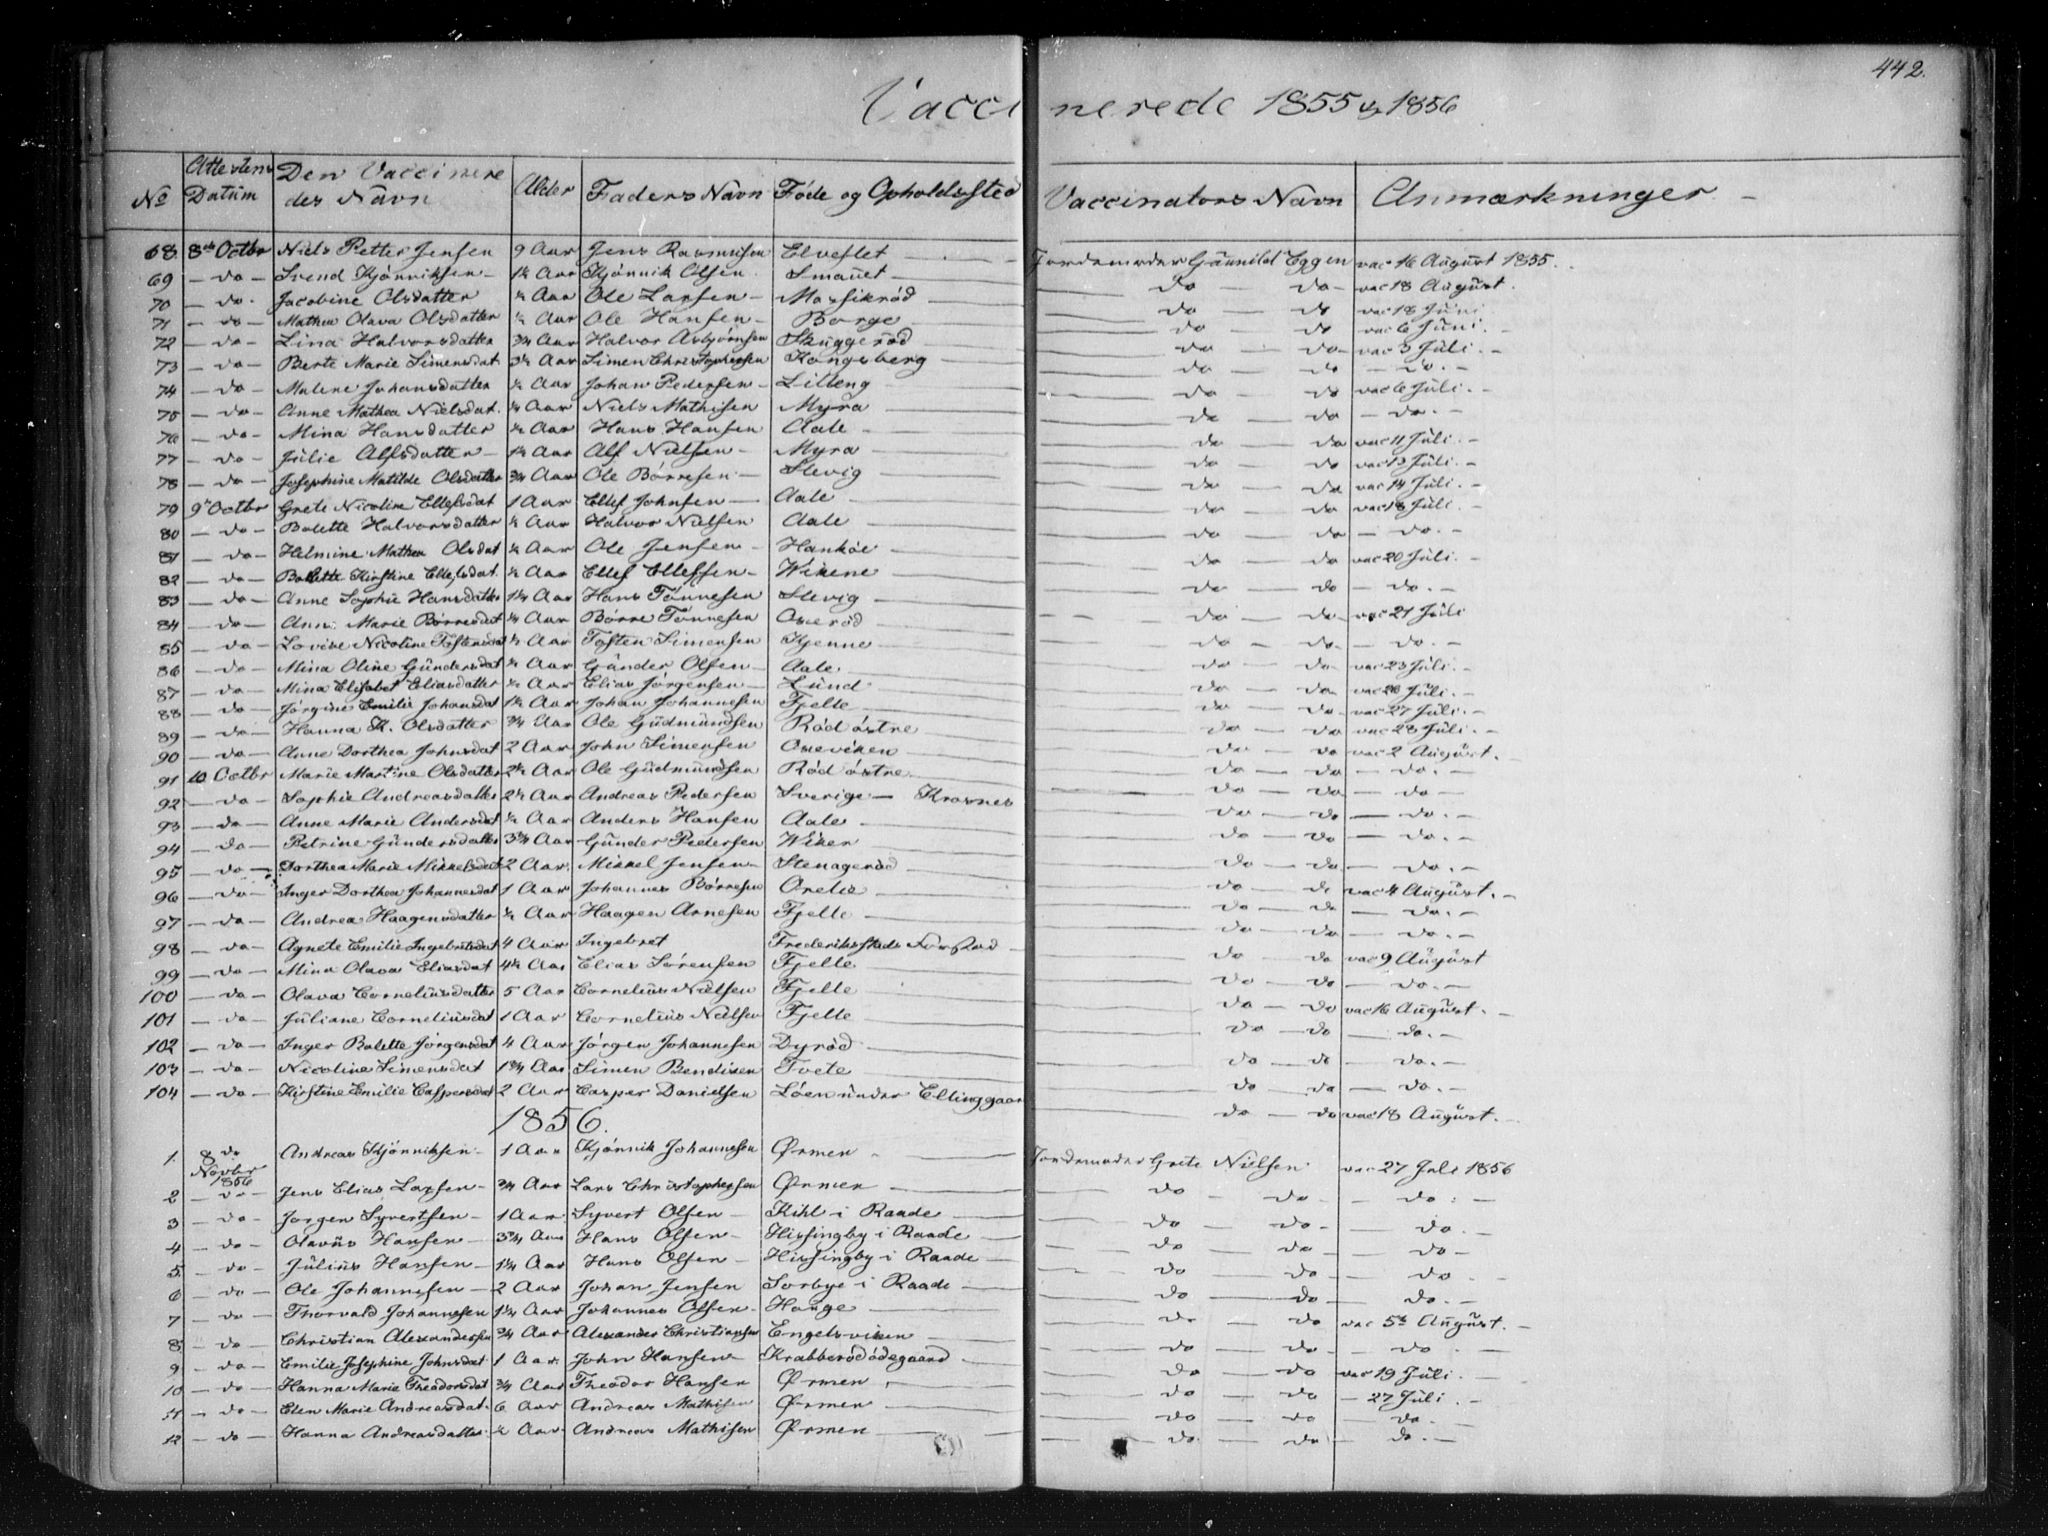 442.
Vaccinerede 1855 og 1856
No Attestens Datum Den Vaccineredes Navn Alder Faders Navn Føde og Opholdssted Vaccinators Navn Anmærkninger
68. 8de Octbr Niels Petter Jensen 9 Aar Jens Rasmusen Elveflet Jordemoder Gunnild Eggen vac 16 August 1855.
69 - do - Svend Kjönniksen 1½ Aar Kjönnik Olsen Smauet do - do - vac 18 August.
70 - do - Jacobine Olsdatter ½ Aar Ole Larsen Mossikröd do - do vac 18 Juni
71 - do - Mathea Olava Olsdatter ½ Aar Ole Hansen Borge do do vac 6 Juni. -
72 - do - Lina Halvorsdatter ¾ Aar Halvor Asbjörnsen Skuggeröd do - do - vac 3 Juli. -
73 - do - Berte Marie Simensdat 3½ Aar Simen Christophersen Kongsberg do - do - do. -
74 - do - Malene Johansdatter ½ Aar Johan Pedersen Lilleng do - do vac 6 Juli. -
75 - do - Anne Mathea Nielsdat. ¼ Aar Niels Mathisen Myra do - do - do. -
76 - do - Mina Hansdatter ½ Aar Hans Hansen Aale do - do vac 11 Juli. -
77 - do - Julie Alfsdatter 1½ Aar Alf Nielsen Myra do - do vac 13 Juli. -
78 - do - Josephine Matilde Olsdatter ¾ Aar Ole Börresen Slevig do - do vac 14 Juli. -
79 9de Octbr Grete Nicoline Ellefsdat 1 Aar Ellef Johnsen Aale do - do vac 18 Juli. -
80 - do - Bolette Halvorsdatter ½ Aar Halvor Nielsen Aale do - do - do. -
81 - do - Helmine Mathea Olsdat ½ Aar Ole Jensen Hanköe do - do vac 20 Juli. -
82 - do - Bolette Kirstine Ellefsdat. ½ Aar Ellef Ellefsen Wikene do - do - do. -
83 - do - Anne Sophie Hansdatter 1¼ Aar Hans Tönnesen Slevig do - do - vac 21 Juli
84 - do - Anne Marie Börresdat ¼ Aar Börre Tönnesen Oseröd do - do - do. -
85 - do - Lovise Nicoline Tostensdat ½ Aar Tosten Simensen Kjenne do - do vac 23 Juli. -
86 - do - Mina Oline Gundersdat ½ Aar Gunder Olsen Aale do - do vac 26 Juli. -
87 - do - Mina Elisabet Eliasdatter ½ Aar Elias Jörgensen Lund do - do - vac 27 Juli. -
88 - do - Jörgine Emilie Johansdat 1½ Aar Johan Johannesen Fjelle do - do vac 28 Juli. -
89 - do - Hanna K. Olsdatter ¾ Aar Ole Gudmundsen Röd östre do - do vac 2 August. -
90 - do - Anne Dorthea Johnsdat 2 Aar John Simensen Oseviken do - do - do. -
91 10 Octbr Marie Martine Olsdatter 2½ Aar Ole Gudmundsen Röd östre do - do - do -
92 - do - Sophie Andreasdatter 2½ Aar Andreas Pedersen Sverige - Krosnes do - do - do. -
93 - do - Anne Marie Andersdat ½ Aar Anders Hansen Aale do - do - do. -
94 - do - Petrine Gundersdatter 3¾ Aar Gunder Pedersen Wiker do - do - do. -
95 - do - Dorthea Marie Mikkelsdat 2 Aar Mikkel Jensen Stenageröd do - do vac 4 August. -
96 - do - Inger Dorthea Johannesdat 1 Aar Johannes Börresen Orelia do - do - do. -
97 - do - Andrea Haagensdatter ½ Aar Haagen Arnesen Fjelle do - do - do. -
98 - do - Agnete Emilie Ingebretsdat 4 Aar Ingebret Frederiksstads Forstad do - do vac 9 August
99 - do - Mina Olava Eliasdat 4½ Aar Elias Sörensen Fjelle do - do - do. -
100 - do - Olava Corneliusdatter 5 Aar Cornelius Nielsen Fjelle do - do vac 16 August. -
101 - do - Juliane Corneliusdat 1 Aar Cornelius Nielsen Fjelle do - do - do. -
102 - do - Inger Bolette Jörgensdat 4 Aar Jörgen Johannesen Dyröd do - do - do. -
103 - do - Nicoline Simensdat 1¾ Aar Simen Bendixen Tvete do do - do. -
104 - do - Kirstine Emilie Caspersdat 2 Aar Casper Danielsen Löen under Elinggaar do - do vac 18 August. -
1856.
1. 8de Novbr 1856 Andreas Kjönniksen 1 Aar Kjönnik Johannesen Ørmen Jordemoder Grete Nielsen vac 27 Juli 1856
2 - do - Jens Elias Larsen ¾ Aar Lars Christophersen Ørmen do - do - do. -
3 - do - Jorgen Syvertsen 1 Aar Syvert Olsen Kihl i Raade do - do - do. -
4 - do - Olavus Hansen 3¾ Aar Hans Olsen Hissingby i Raade do - do - do -
5 - do - Julius Hansen 1¼ Aar Hans Olsen Hissingby i Raade do - do - do. -
6 - do - Ole Johannesen 2 Aar Johan Jensen Sorbye i Raade do - do - do. -
7 - do - Thorvald Johannesen 1¼ Aar Johannes Olsen Hauge do - do vac 5te August. -
8 - do - Christian Alexandersen ¾ Aar Alexander Christiansen Engelsviken do - do - do -
9 - do - Emilie Josephine Johnsdat 1 Aar. John Hansen Krabberödödegaard do - do vac 19 Juli. -
10 - do - Hanna Marie Theodorsdat ¾ Aar Theodor Hansen Ørmen do - do - 27 Juli. -
11 - do - Elen Marie Andreasdat. 6 Aar Andreas Mathisen Ørmen do - do - do. -
12 - do - Hanna Andreasdatter ½ Aar Andreas Mathisen Ørmen do - do - do. -